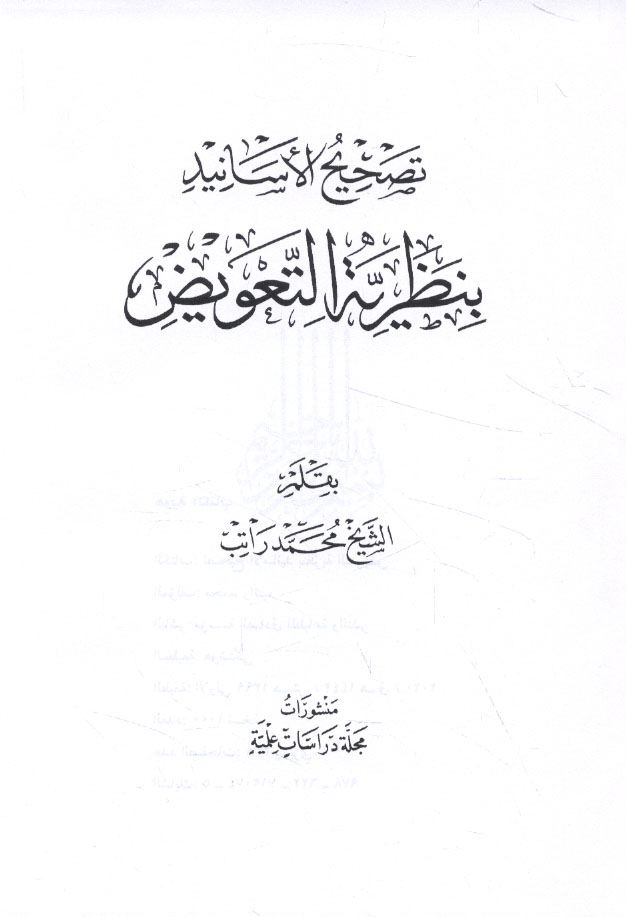 تصحيح الأسانيد
بنظرية التعويض
بقلم
الشيخ محمد راتب
منشورات
مجلة دراسات علمية